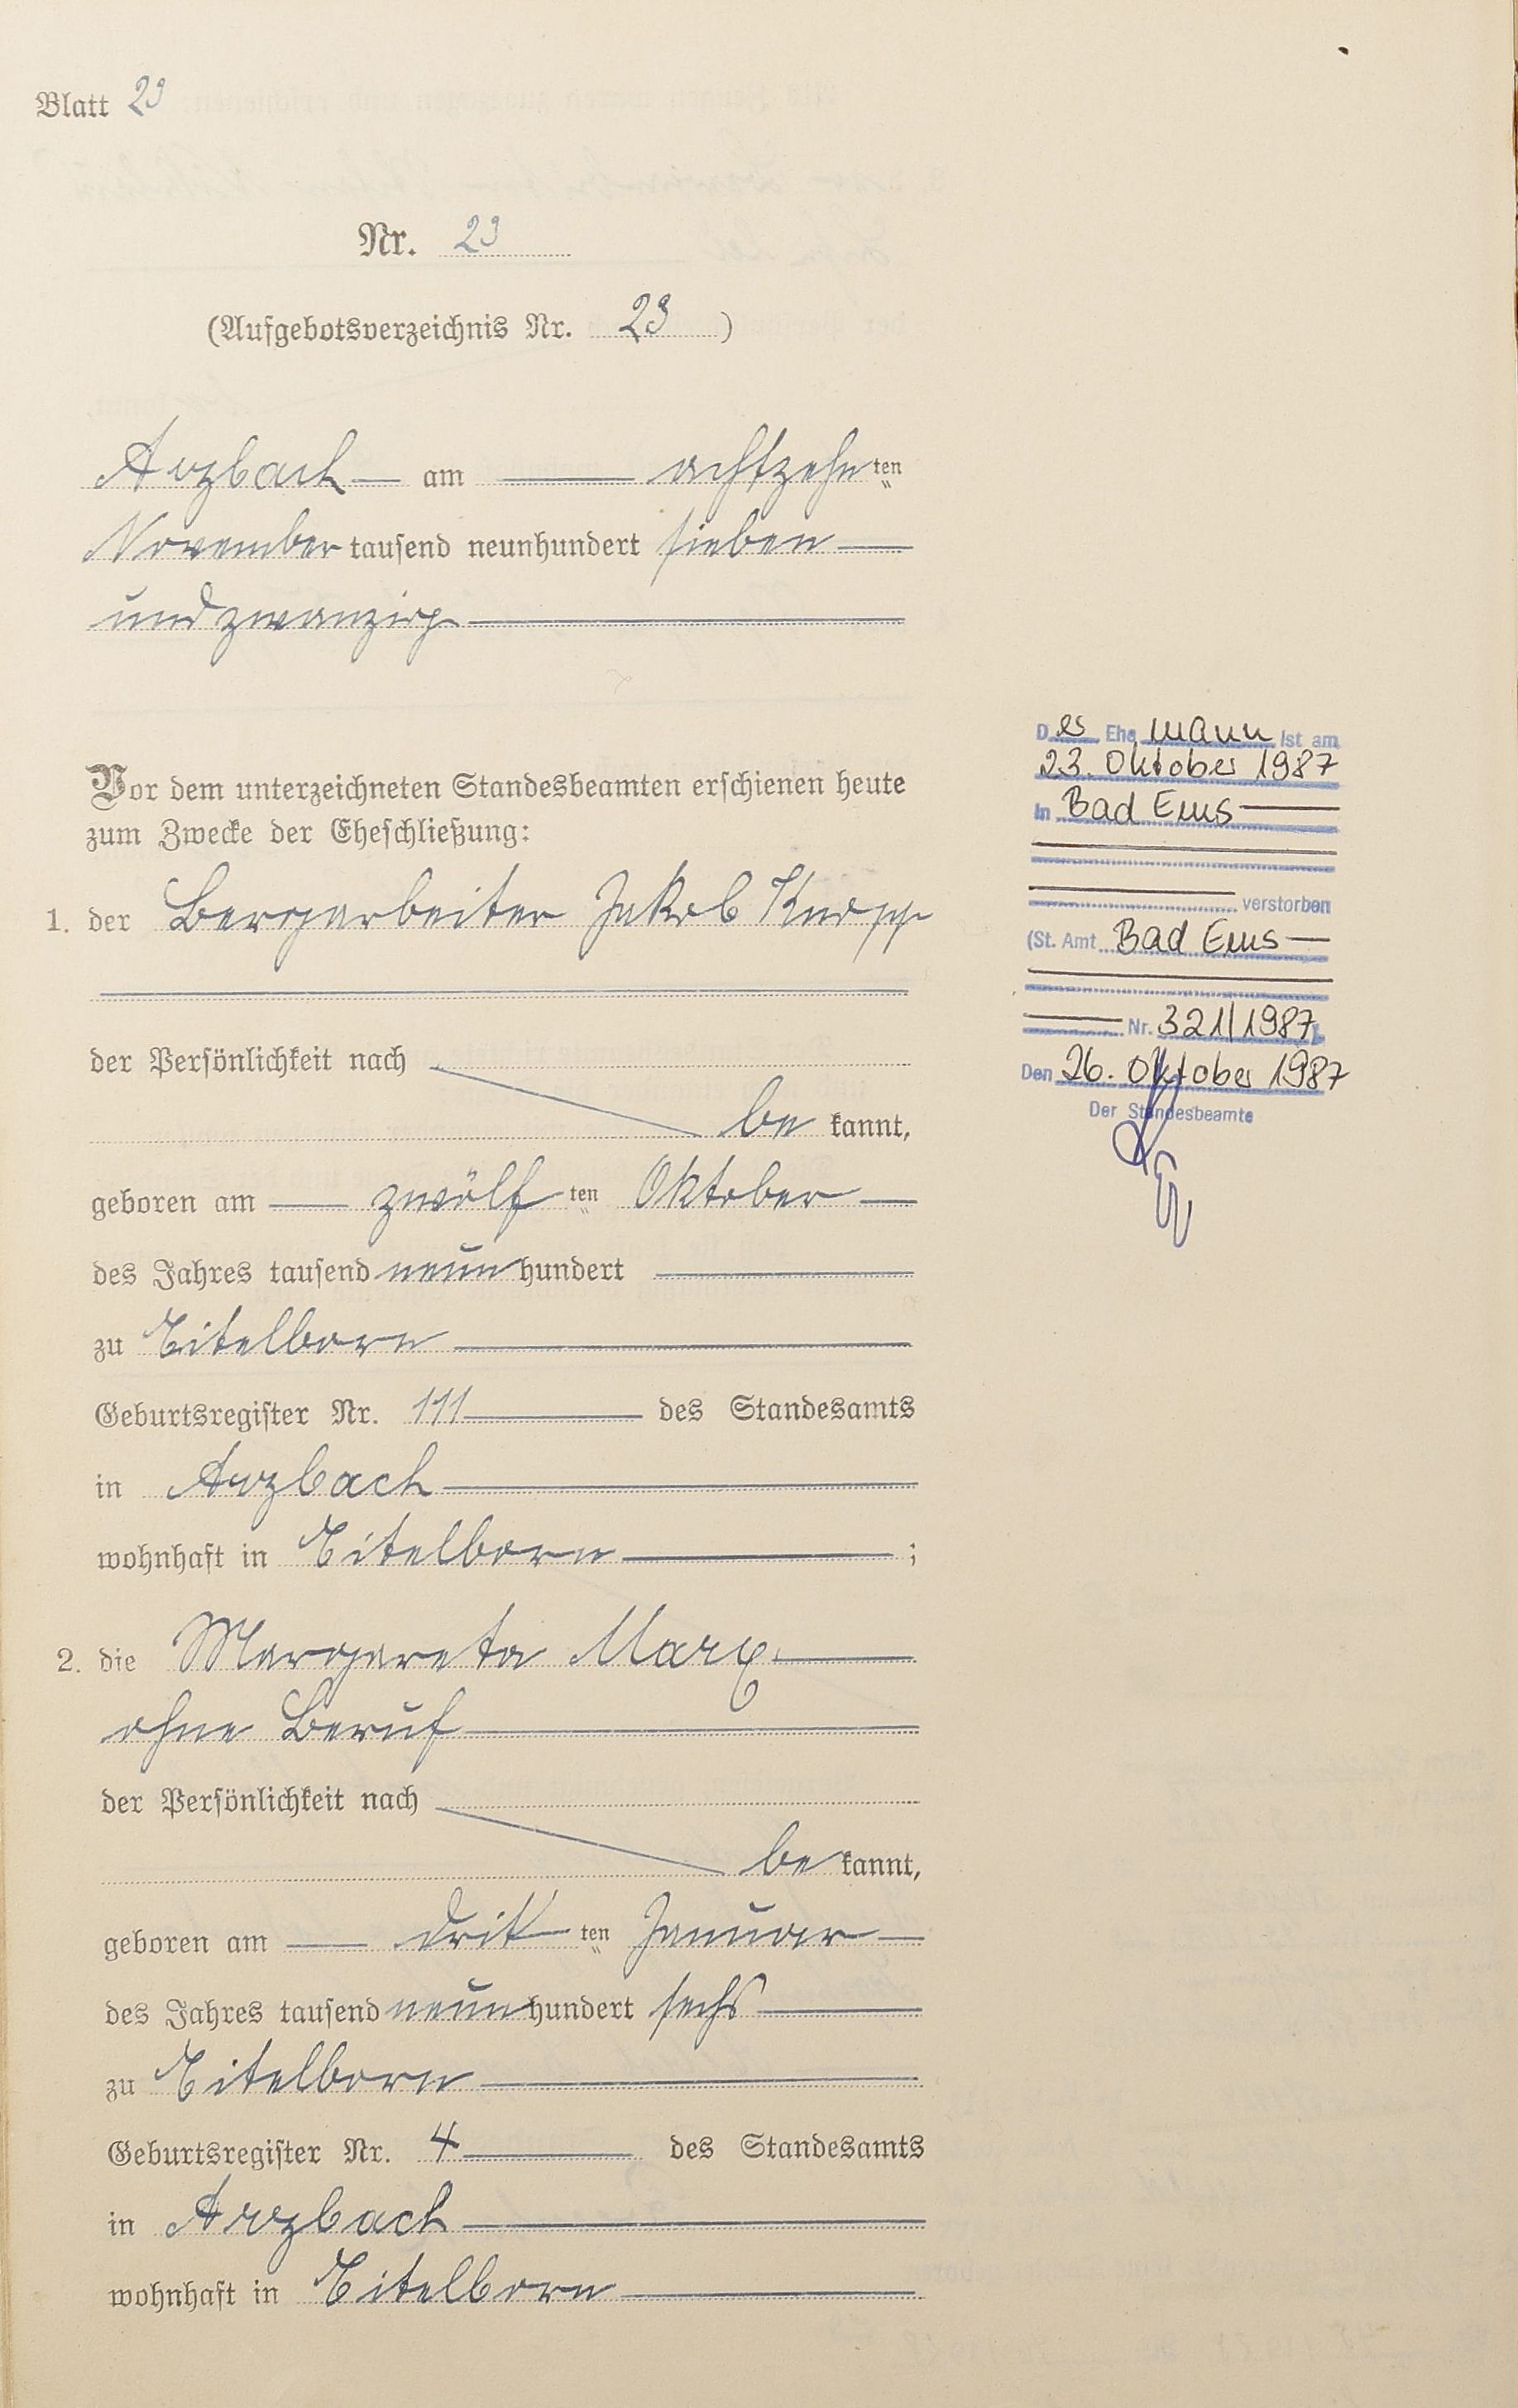 Blatt 23
Nr. 23
(Aufgebotsverzeichnis Nr. 23)
Arzbach am achtzehnten
November tausend neunhundert sieben
undzwanzig
Vor dem unterzeichneten Standesbeamten erschienen heute
zum Zwecke der Eheschließung:
1. der Bergarbeiter Jakob Knopp
der Persönlichkeit nach
be kannt,
geboren am zwölf ten Oktober
des Jahres tausend neun hundert
zu Eitelborn
Geburtsregister Nr. 111 des Standesamts
in Arzbach
wohnhaft in Eitelborn ;
2. die Margareta Marx
ohne Beruf
der Persönlichkeit nach
be kannt,
geboren am drit ten Januar
des Jahres tausend neun hundert sechs
zu Eitelborn
Geburtsregister Nr. 4 des Standesamts
in Arzbach
wohnhaft in Eitelborn
Der Ehemann ist am
23. Oktober 1987
in Bad Ems
verstorben
(St. Amt Bad Ems
Nr. 321/1987)
Den 26. Oktober 1987
Der Standesbeamte